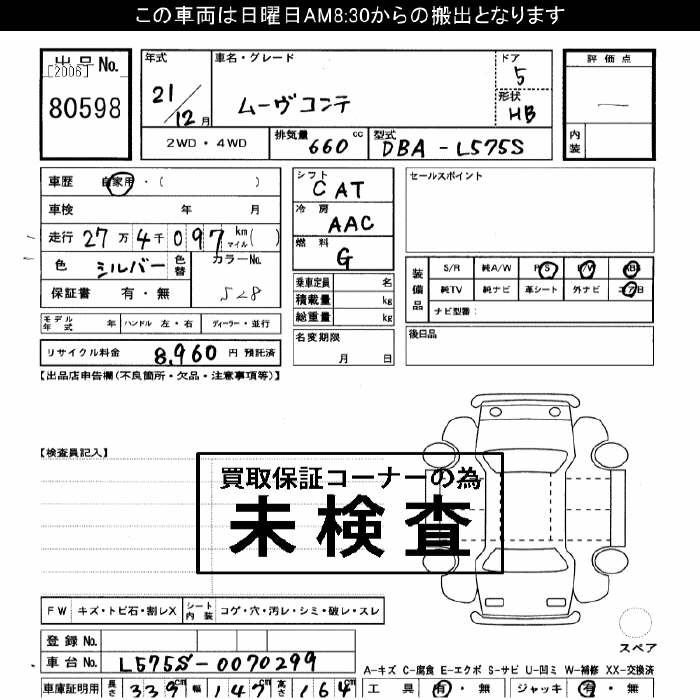 この車両は日曜日AM8:30からの搬出となります
出品No.
[2006]
80598
年式
21/12月
車名・グレード
ムーヴコンテ
ドア
5
形状
HB
評価点
―
内装
2WD・4WD
排気量 660 cc
型式 DBA-L575S
車歴 自家用・( )
車検 年 月
走行 27万4千097 km マイル( )
色 シルバー 色替
カラーNo.
S28
保証書 有・無
シフト
CAT
冷房
AAC
燃料
G
乗車定員 名
積載量 kg
総重量 kg
名変期限
月 日
セールスポイント
装備品
S/R 純A/W P/S P/W ABS
純TV 純ナビ 革シート 外ナビ エアB
ナビ型番:
後日品
モデル年式 年 ハンドル 左・右 ディーラー・並行
リサイクル料金 8,960 円 預託済
【出品店申告欄(不良箇所・欠品・注意事項等)】
【検査員記入】
買取保証コーナーの為
未検査
FW キズ・トビ石・割レX シート内装 コゲ・穴・汚レ・シミ・破レ・スレ
登録No.
車台No. L575S-0070299
車庫証明用 長さ 339cm 幅 147cm 高さ 164cm
スペア
A-キズ C-腐食 E-エクボ S-サビ U-凹ミ W-補修 XX-交換済
工具 有・無 ジャッキ 有・無